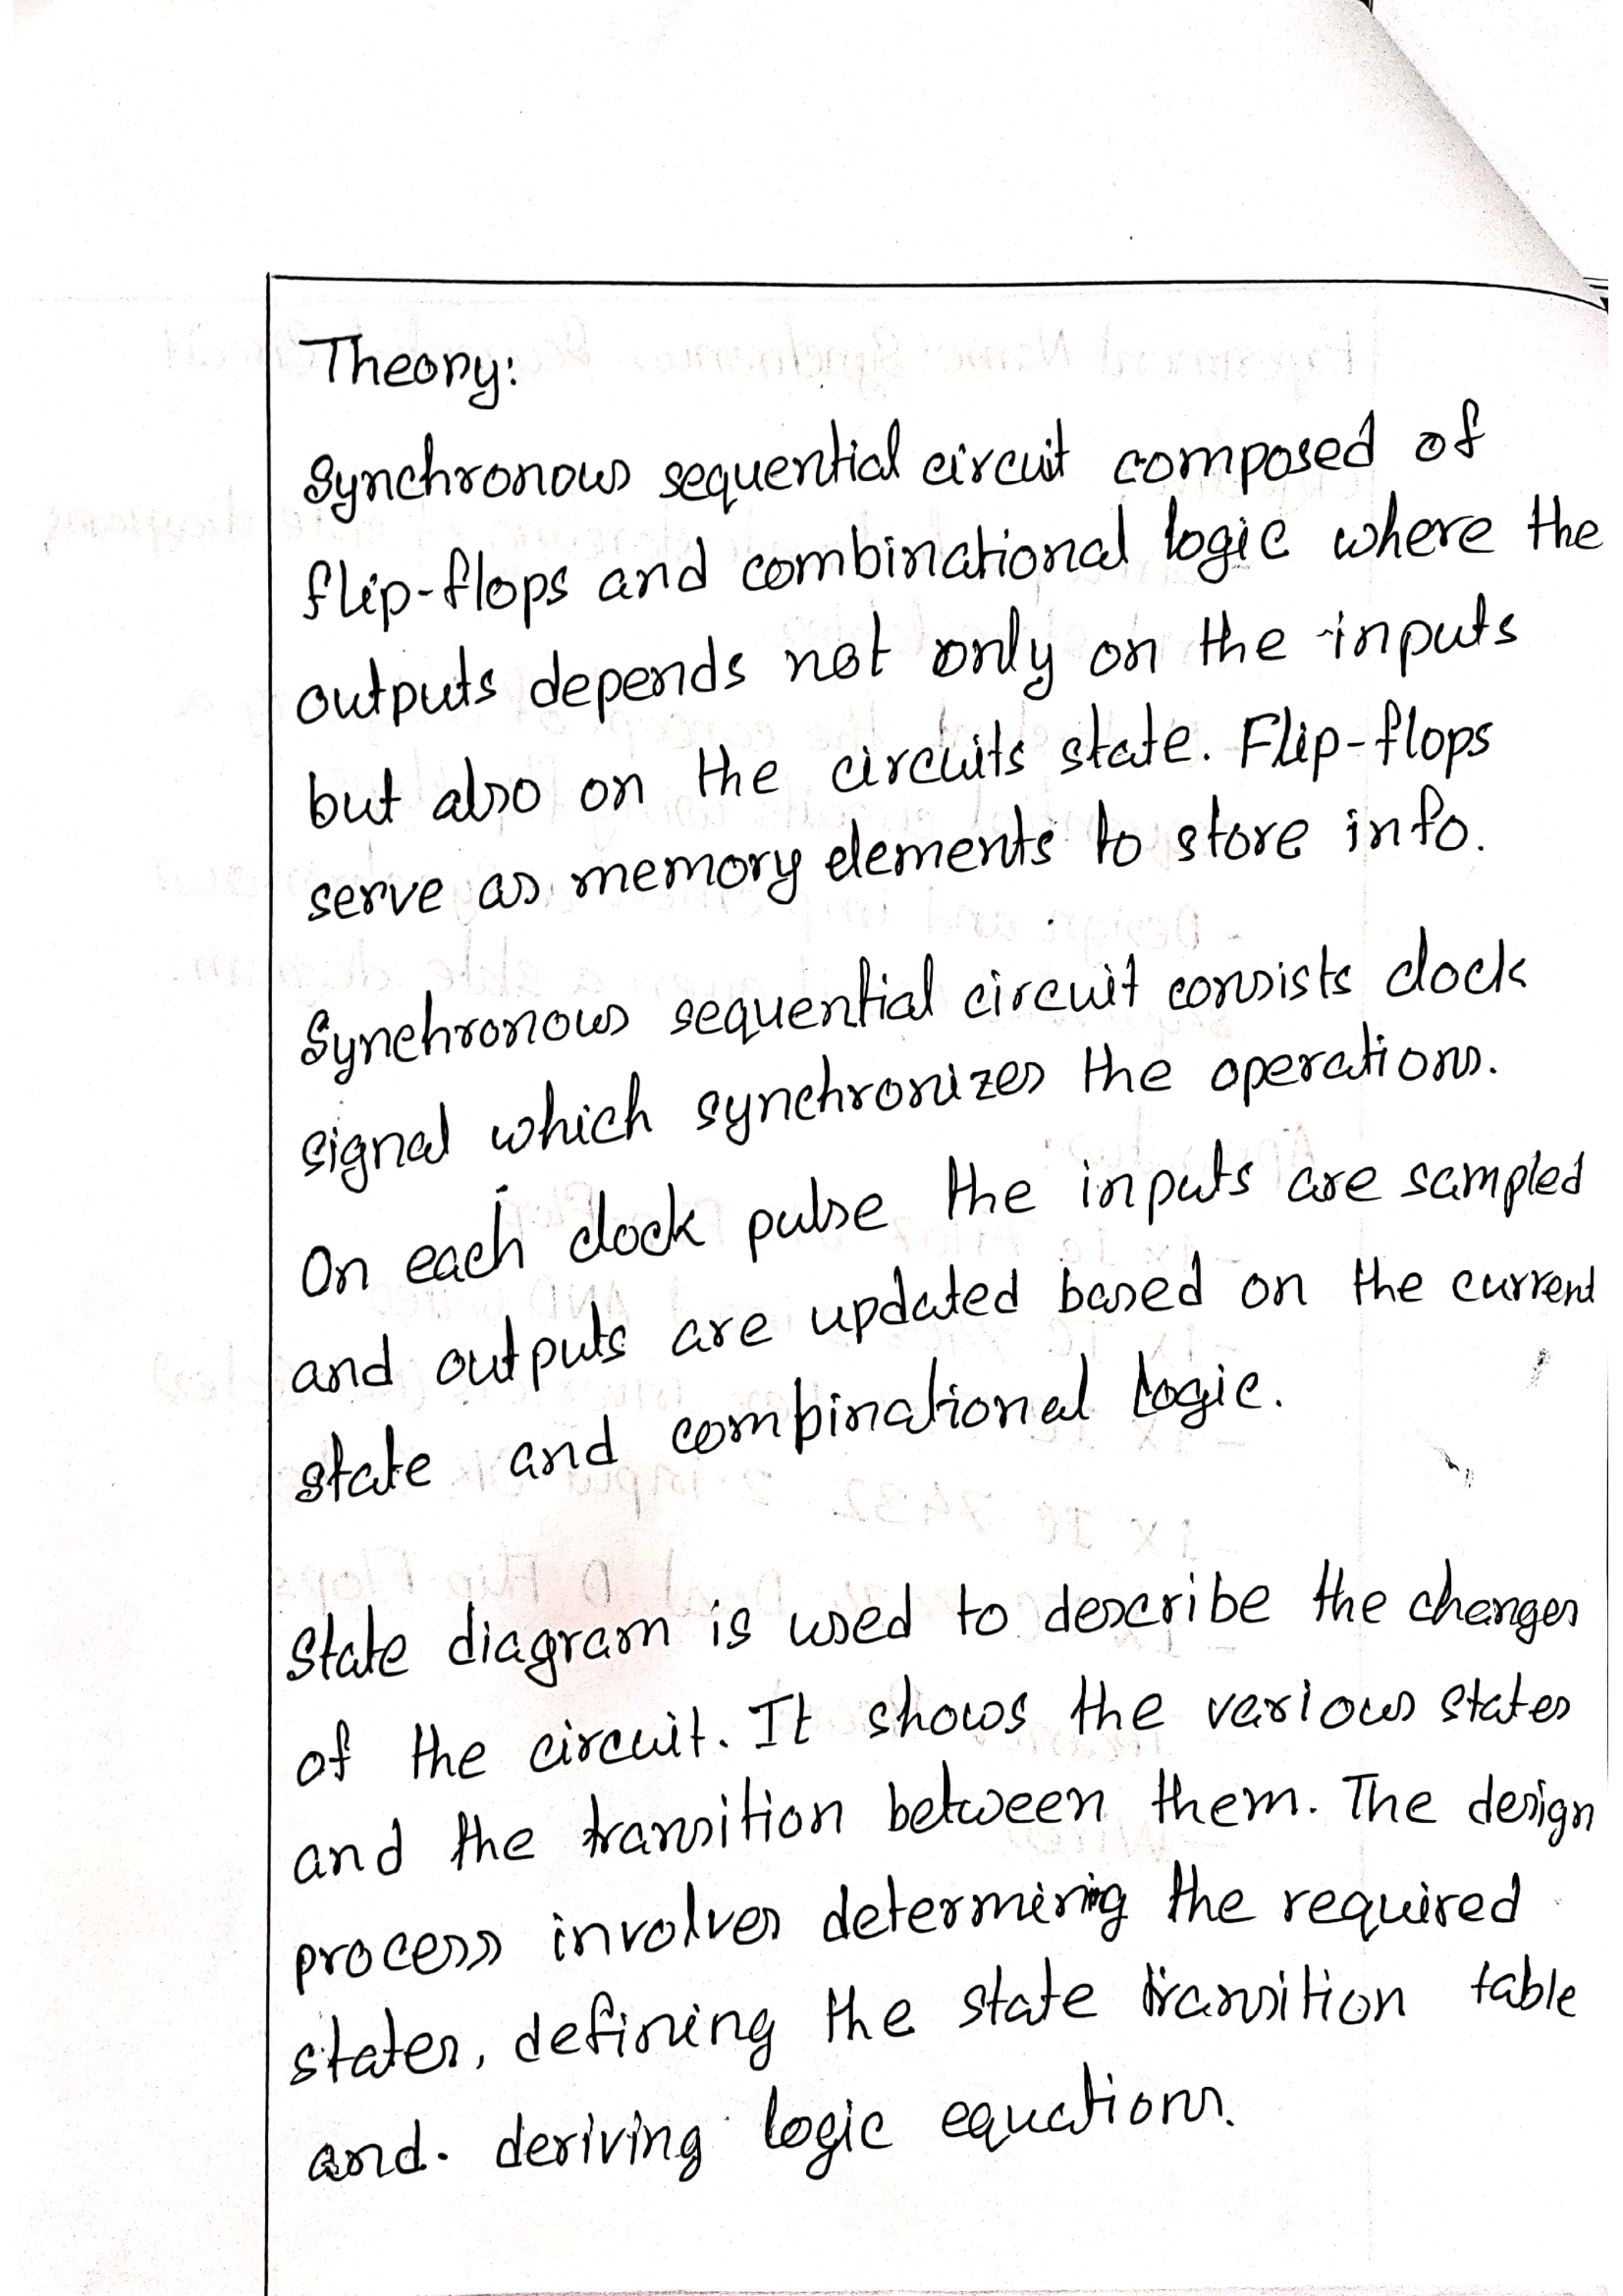 Theory:
Synchronous sequential circuit composed of
flip-flops and combinational logic where the
outputs depends not only on the inputs
but also on the circuits state. Flip-flops
serve as memory elements to store info.
Synchronous sequential circuit consists clock
signal which synchronizes the operations.
On each clock pulse the inputs are sampled
and outputs are updated based on the current
state and combinational logic.
State diagram is used to describe the changes
of the circuit. It shows the various states
and the transition between them. The design
process involves determining the required
states, defining the state transition table
and deriving logic equations.